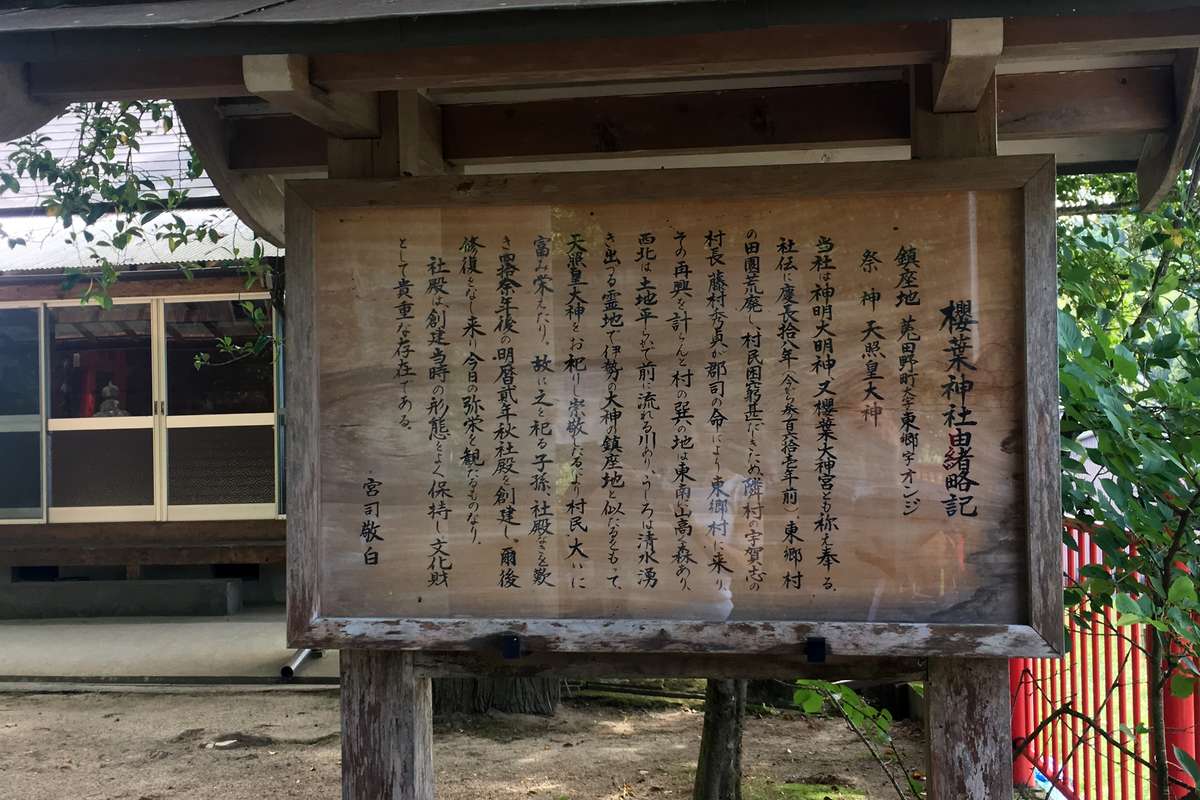 櫻葉神社由緒略記
鎮座地 菟田野町大字東郷字オンジ
祭神 天照皇大神
当社は神明大明神又櫻葉大神宮とも称え奉る。
社伝に慶長拾八年(今から参百六拾壱年前)、東郷村
の田園荒廃し、村民困窮甚だしきため、隣村の宇賀志の
村長、藤村秀眞が郡司の命により東郷村に来り、
その再興を計らんと村の巽の地は東南に山高く森あり、
西北は土地平らかで前に流れる川あり、うしろは清水湧
き出づる霊地で伊勢の大神の鎮座地と似たるをもって、
天照皇大神をお祀りし崇敬したるより村民、大いに
富み栄えたり。故に之を祀る子孫、社殿なきを歎
き四拾余年後の明暦弐年秋社殿を創建し、爾後
修復をなし来り今日の弥栄を観たるものなり。
社殿は創建当時の形態をよく保持し文化財
として貴重な存在である。
宮司敬白